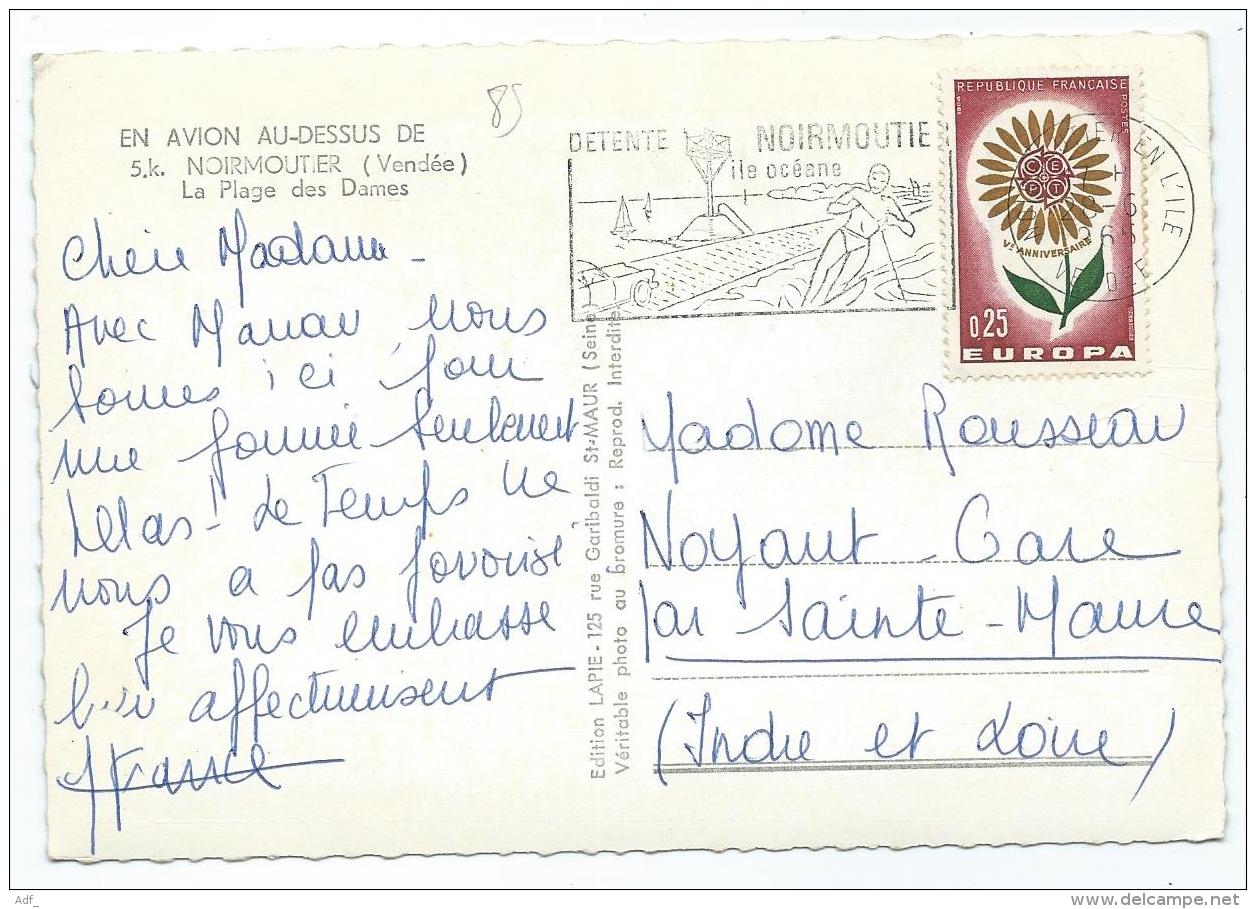 85
EN AVION AU-DESSUS DE
5.k. NOIRMOUTIER (Vendée)
La Plage des Dames
DETENTE NOIRMOUTIE
île océane
REPUBLIQUE FRANÇAISE
POSTES
C E P T
Vᵉ ANNIVERSAIRE
0,25
EUROPA
EN L'ILE
VENDEE
Chère Madame -
Avec Manau nous
sommes ici pour
une journée seulement
hélas! Le Temps ne
nous a pas favorisé,
Je vous embrasse
bien affectueusement
France
Edition LAPIE - 125 rue Garibaldi Sᵗ-MAUR (Seine)
Véritable photo au bromure : Reprod. Interdite
Madame Rousseau
Noyant - Gare
par Sainte - Maure
(Indre et Loire)
Adf_
www.delcampe.net